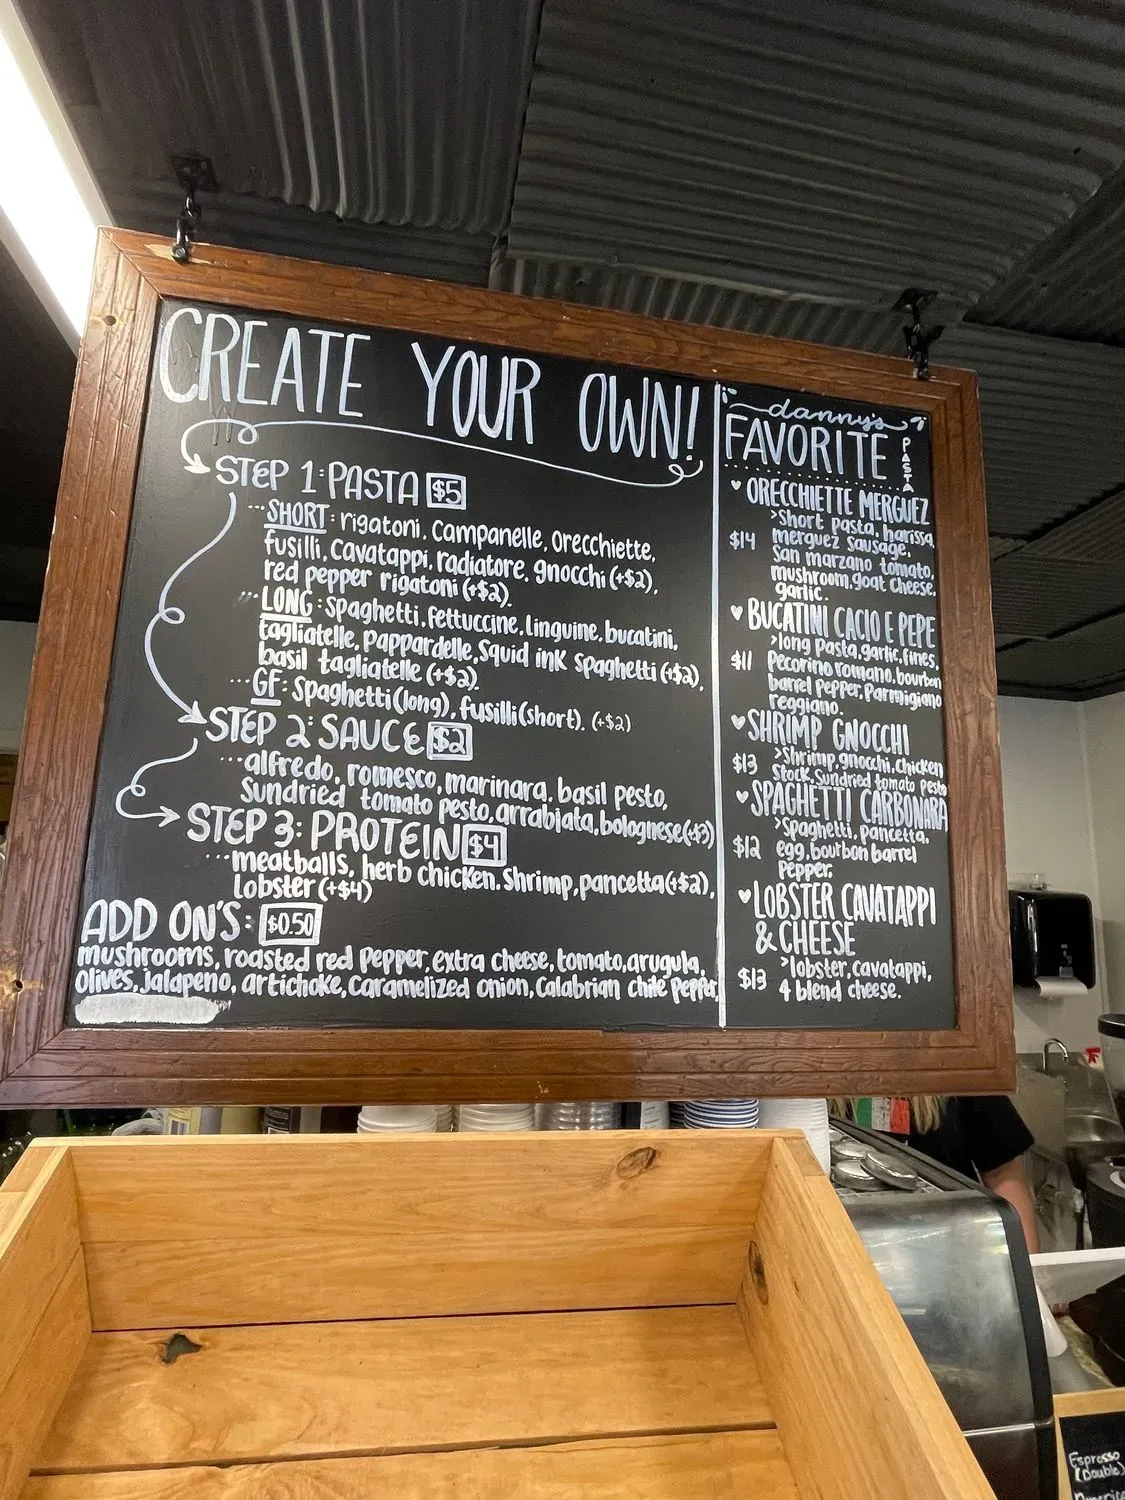 CREATE YOUR OWN!
STEP 1: PASTA $5
...SHORT: rigatoni, Campanelle, Orecchiette,
fusilli, Cavatappi, radiatore, gnocchi (+$2),
red pepper rigatoni (+$2).
...LONG: Spaghetti, fettuccine, linguine, bucatini,
tagliatelle, Pappardelle, Squid ink Spaghetti (+$2),
basil tagliatelle (+$2).
...GF: Spaghetti (long), fusilli (short). (+$2)
STEP 2: SAUCE $2
...alfredo, romesco, marinara, basil pesto,
Sundried tomato pesto, arrabiata, bolognese (+$3)
STEP 3: PROTEIN $4
...meatballs, herb chicken, Shrimp, pancetta (+$2),
Lobster (+$4)
ADD ON'S: $0.50
mushrooms, roasted red Pepper, extra cheese, tomato, arugula,
olives, jalapeno, artichoke, Caramelized onion, Calabrian chile pepper,
danny's
FAVORITE PASTA
♥ ORECCHIETTE MERGUEZ
>Short pasta, harissa,
$14 merguez Sausage,
San marzano tomato,
mushroom, goat cheese,
garlic.
♥ BUCATINI CACIO E PEPE
>long pasta, garlic, fines,
$11 Pecorino romano, bourbon
barrel Pepper, Parmigiano
reggiano.
♥ SHRIMP GNOCCHI
>Shrimp, gnocchi, Chicken
$13 Stock, Sundried tomato Pesto
♥ SPAGHETTI CARBONARA
>Spaghetti, pancetta,
$12 egg, bourbon barrel
Pepper.
♥ LOBSTER CAVATAPPI
& CHEESE
>lobster, cavatappi,
$13 4 blend cheese.
Espresso
(Double)